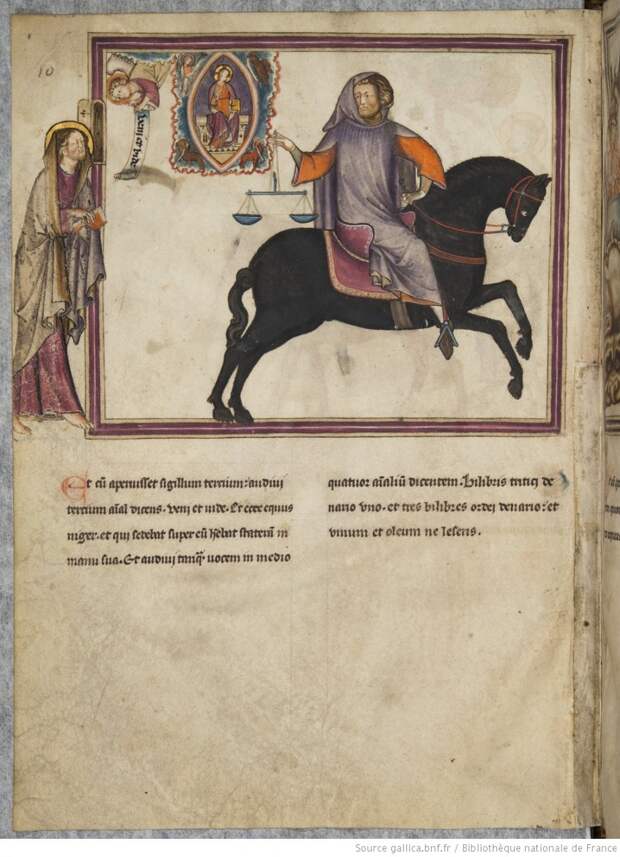 10
veni et vide
Et cū aperuisset sigillum tercium: audivi
tercium aīal dicens. veni et vide. Et ecce equus
niger. et qui sedebat super eū hēbat staterā in
manu sua. Et audivi tanq̄ vocem in medio
quatuor aīaliū dicentem. bilibris tritici de
nario vno. et tres bilibres ordei denario: et
vinum et oleum ne leseris.
Source gallica.bnf.fr / Bibliothèque nationale de France